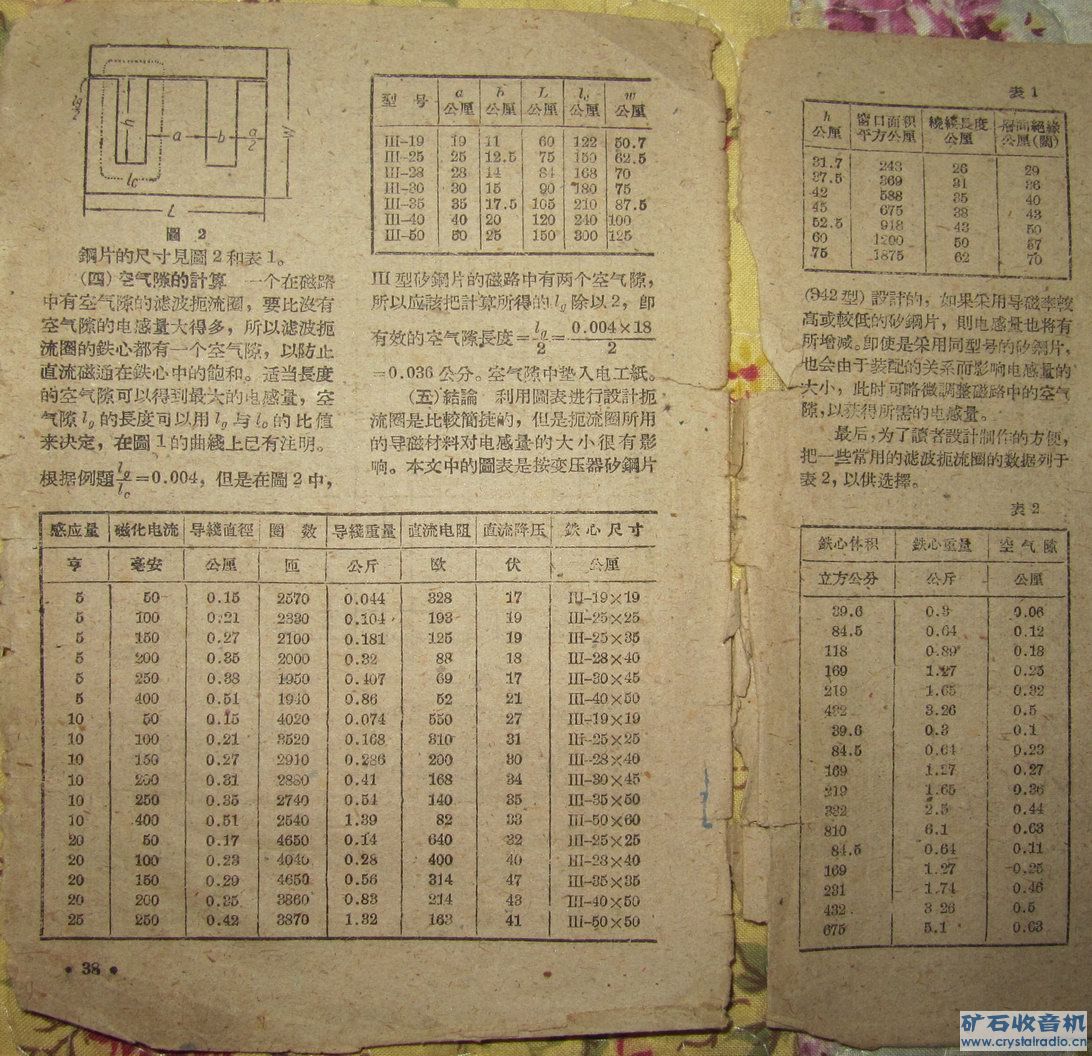 lg/2
h
a
b
a/2
W
lc
L
圖 2
鋼片的尺寸見圖2和表1。
(四)空气隙的計算 一个在磁路
中有空气隙的滤波扼流圈，要比没有
空气隙的电感量大得多，所以滤波扼
流圈的鉄心都有一个空气隙，以防止
直流磁通在鉄心中的飽和。适当長度
的空气隙可以得到最大的电感量，空
气隙 lg 的長度可以用 lg 与 lc 的比值
来决定，在圖1的曲綫上已有注明。
根据例題 lg/lc=0.004，但是在圖2中，
型 号 a 公厘 b 公厘 L 公厘 lc 公厘 w 公厘
III-19 19 11 60 122 50.7
III-25 25 12.5 75 150 62.5
III-28 28 14 84 168 70
III-30 30 15 90 180 75
III-35 35 17.5 105 210 87.5
III-40 40 20 120 240 100
III-50 50 25 150 300 125
III 型矽鋼片的磁路中有两个空气隙，
所以应該把計算所得的 lg 除以2，卽
有效的空气隙長度=lg/2=0.004×18/2
=0.036 公分。空气隙中墊入电工紙。
(五)結論 利用圖表进行設計扼
流圈是比較簡捷的，但是扼流圈所用
的导磁材料对电感量的大小很有影
响。本文中的圖表是按变压器矽鋼片
表 1
h 公厘 窗口面积 平方公厘 繞綫長度 公厘 層間絕緣 公厘(闊)
31.7 243 26 29
37.5 369 31 36
42 588 35 40
45 675 38 43
52.5 918 43 50
60 1200 50 57
75 1875 62 70
(942型)設計的，如果采用导磁率較
高或較低的矽鋼片，則电感量也将有
所增减。卽使是采用同型号的矽鋼片，
也会由于装配的关系而影响电感量的
大小，此时可略微調整磁路中的空气
隙，以获得所需的电感量。
最后，为了讀者設計制作的方便，
把一些常用的滤波扼流圈的数据列于
表2，以供选擇。
表 2
感应量 磁化电流 导綫直徑 圈 数 导綫重量 直流电阻 直流降压 鉄心尺寸 鉄心体积 鉄心重量 空气隙
亨 毫安 公厘 匝 公斤 欧 伏 公厘 立方公分 公斤 公厘
5 50 0.15 2570 0.044 328 17 III-19×19 39.6 0.3 0.06
5 100 0.21 2330 0.104 193 19 III-25×25 84.5 0.64 0.12
5 150 0.27 2100 0.181 125 19 III-25×35 118 0.89 0.18
5 200 0.35 2000 0.32 88 18 III-28×40 169 1.27 0.25
5 250 0.38 1950 0.407 69 17 III-30×45 219 1.65 0.32
5 400 0.51 1940 0.86 52 21 III-40×50 432 3.26 0.5
10 50 0.15 4020 0.074 550 27 III-19×19 39.6 0.3 0.1
10 100 0.21 3520 0.168 310 31 III-25×25 84.5 0.64 0.23
10 150 0.27 2910 0.286 200 30 III-28×40 169 1.27 0.27
10 200 0.31 2880 0.41 168 34 III-30×45 219 1.65 0.36
10 250 0.35 2740 0.54 140 35 III-35×50 332 2.5 0.44
10 400 0.51 2540 1.39 82 33 III-50×60 810 6.1 0.63
20 50 0.17 4650 0.14 640 32 III-25×25 84.5 0.64 0.11
20 100 0.23 4040 0.28 400 40 III-28×40 169 1.27 0.25
20 150 0.29 4650 0.56 314 47 III-35×35 231 1.74 0.46
20 200 0.35 3860 0.83 214 43 III-40×50 432 3.26 0.5
25 250 0.42 3870 1.32 163 41 III-50×50 675 5.1 0.63
• 38 •
矿石收音机
www.crystalradio.cn